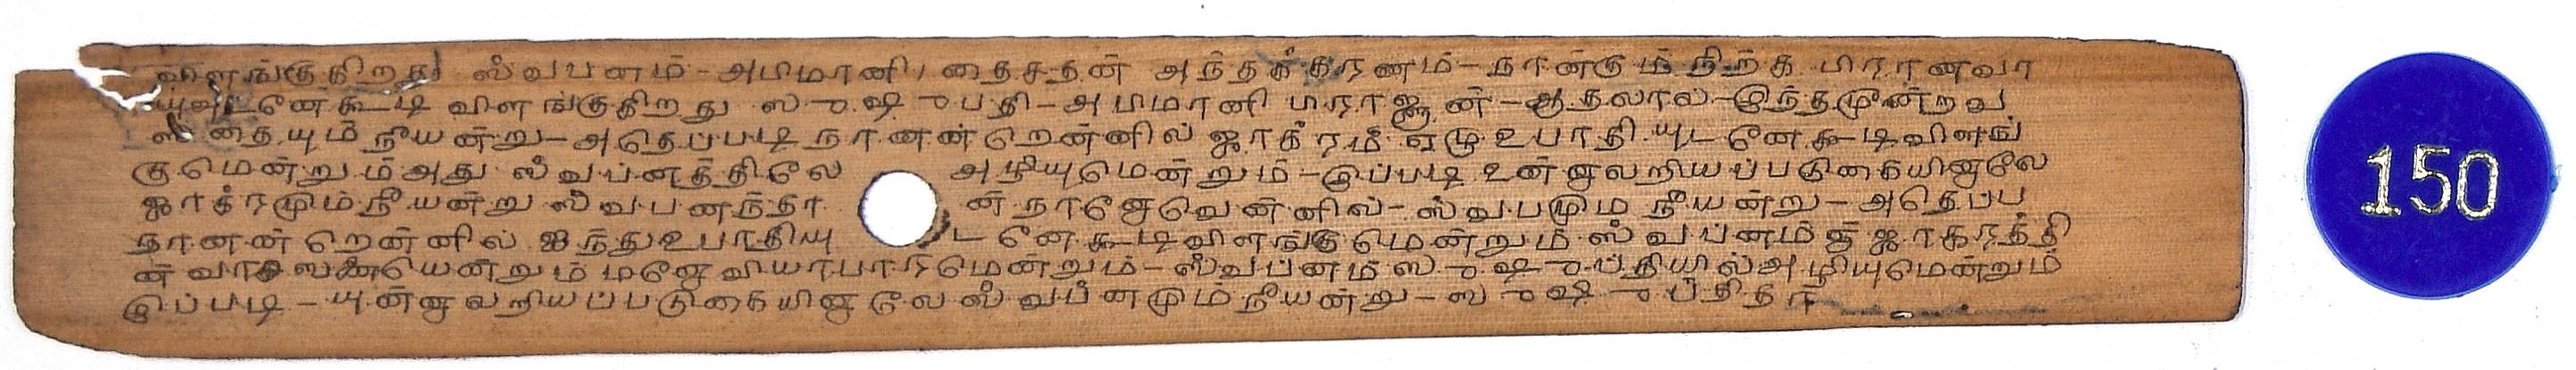 விளங்குகிறது ஸ்வபனம்-அபிமானி தைசதன் அந்தக்கரணம்-நான்கும்நிற்க பிராணவா
யுவுடனேகூடி விளங்குகிறது ஸுஷுபதி-அபிமானி பராஜ்ஞன்-ஆதலால்-இந்தமூன்றவ
ஸ்தையும்நீயன்று-அதெப்படிநானன்றென்னில் ஜாக்ரம் ஏழு உபாதியுடனேகூடிவிளங்
குமென்றும்அது ஸ்வப்னத்திலே அழியுமென்றும்-இப்படி உன்னாலறியப்படுகையினாலே
ஜாக்ரமும்நீயன்று ஸ்வபனந்தா ன்நானோவென்னில்-ஸ்வபமும் நீயன்று-அதெப்ப
நானன்றென்னில் ஐந்துஉபாதியு டனேகூடிவிளங்குமென்றும் ஸ்வப்னம் ஜாகரத்தி
ன்வாசனையென்றும்மனோவியாபாரமென்றும்-ஸ்வப்னம்ஸுஷுப்தியில்அழியுமென்றும்
இப்படி-யுன்னாலறியப்படுகையினாலே ஸ்வப்னமும்நீயன்று-ஸுஷுப்திதா
150